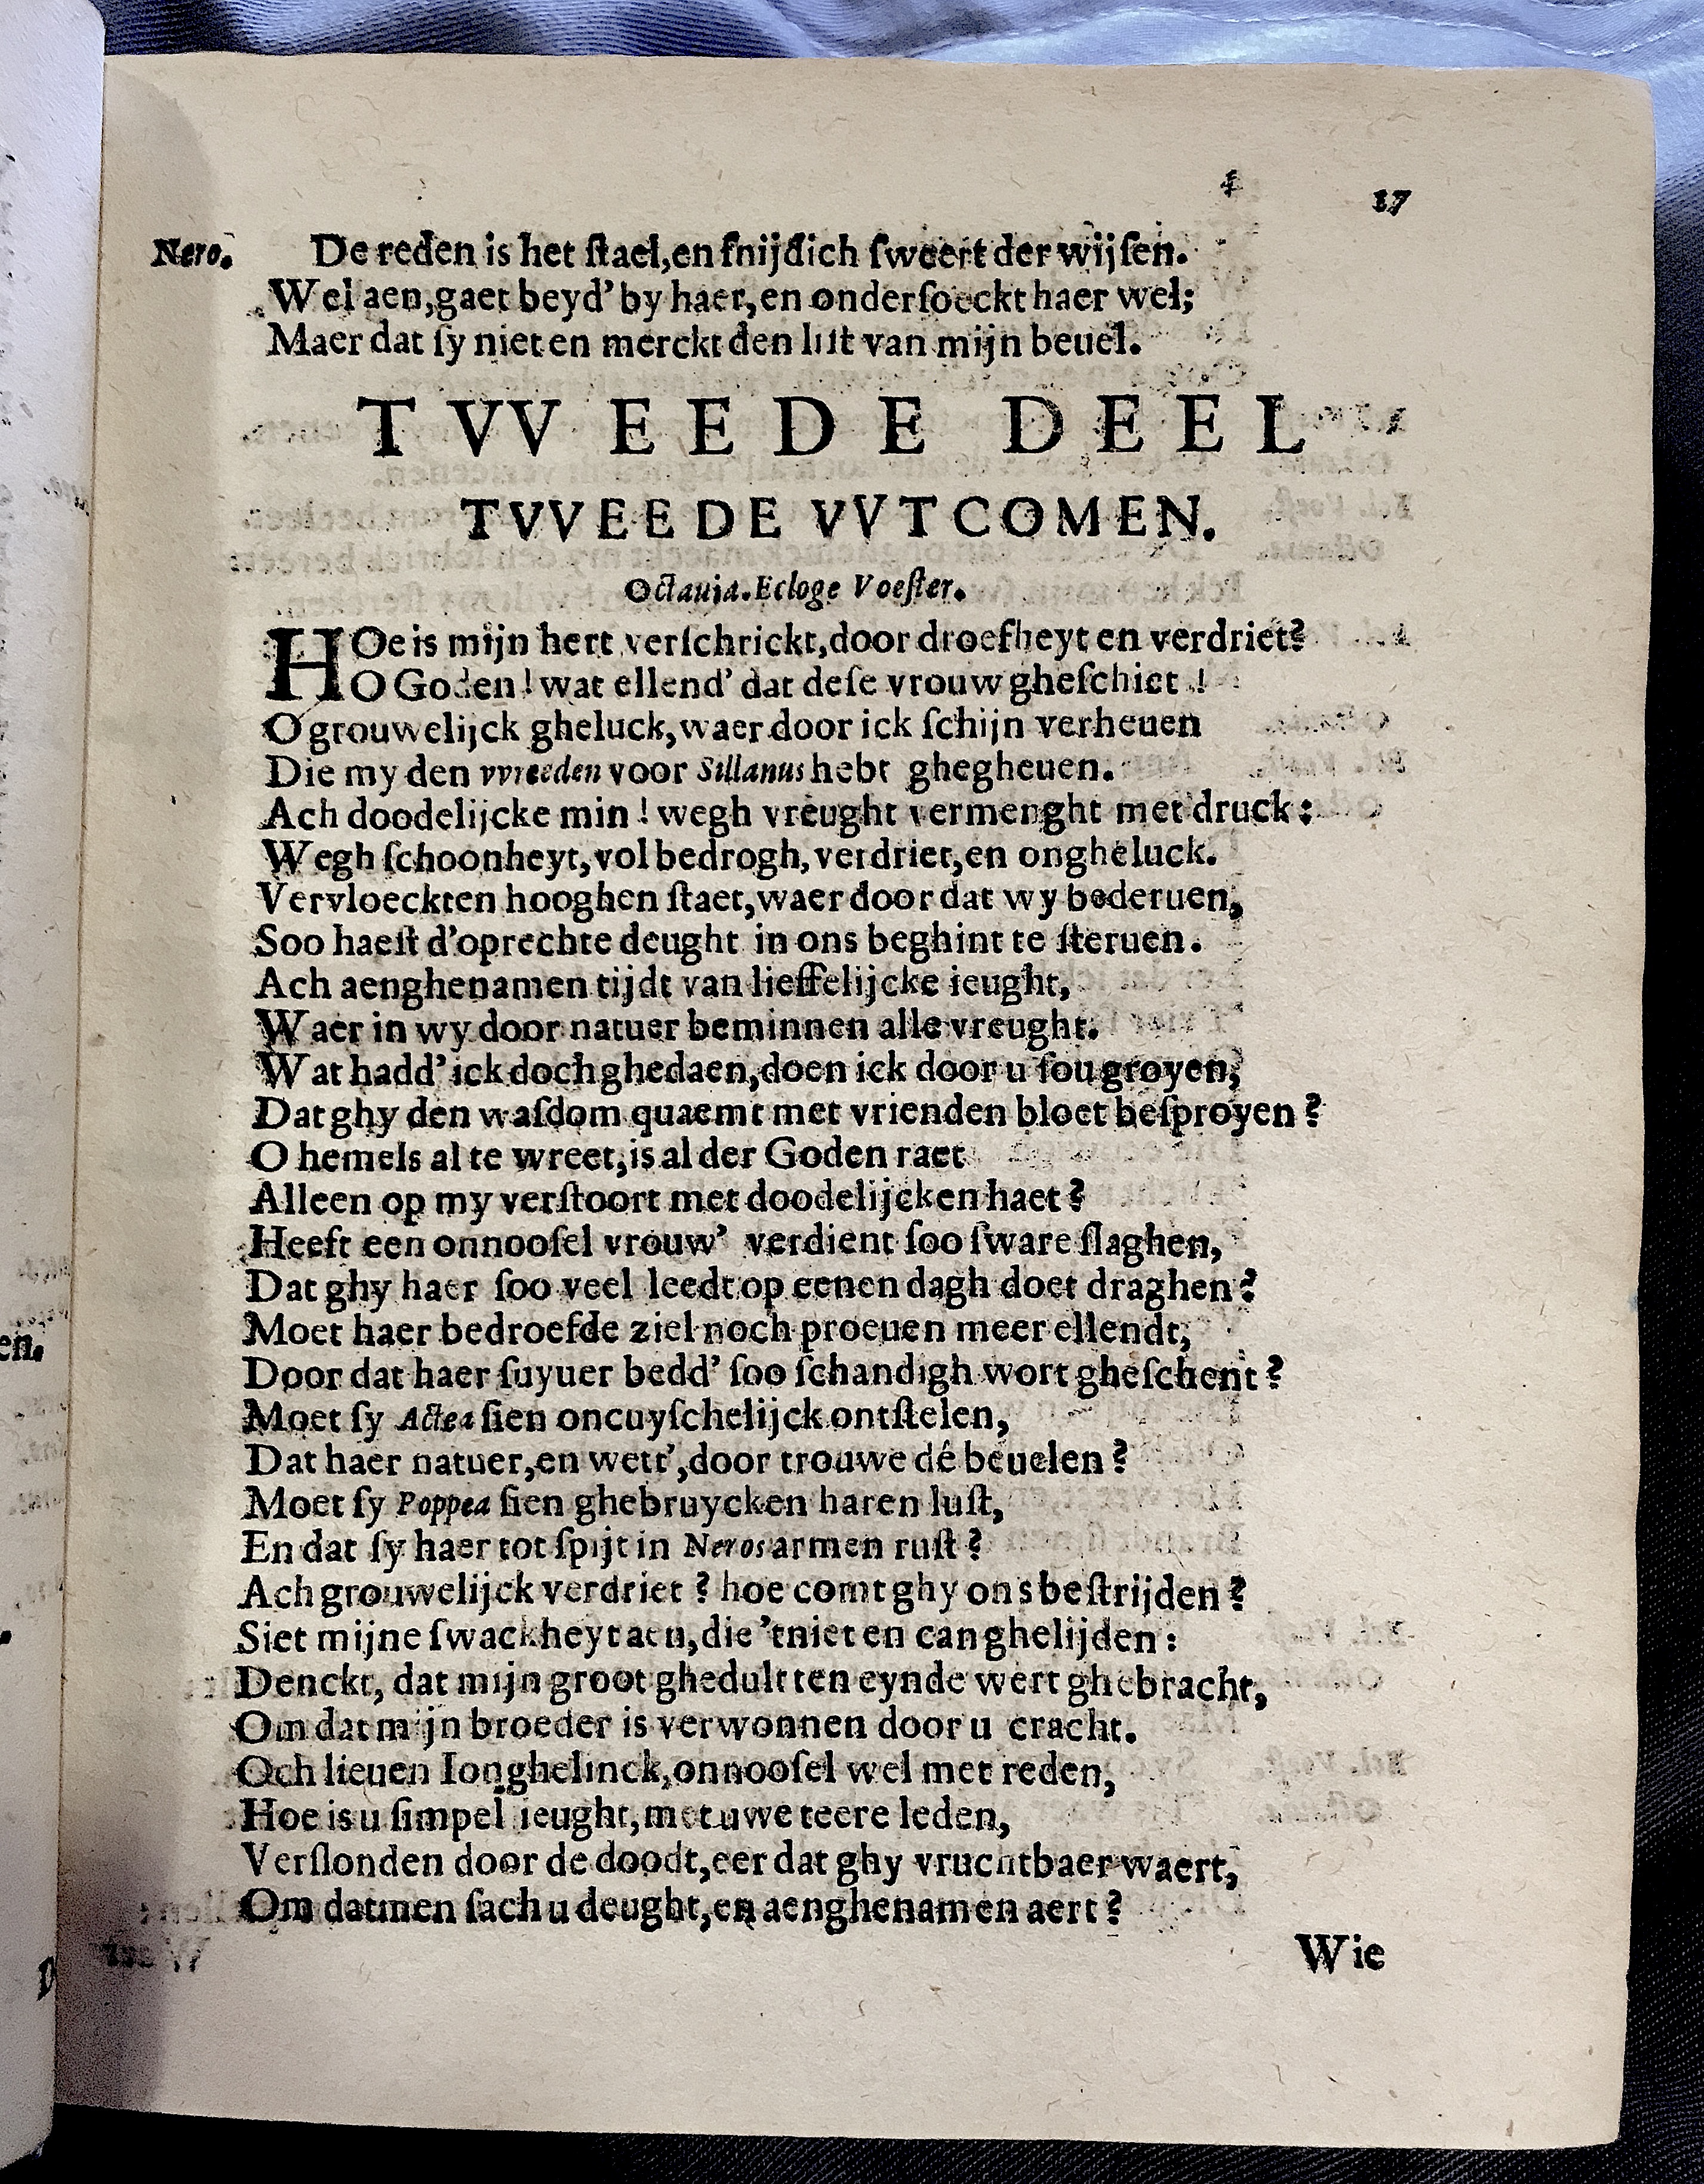 4
17
Nero. De reden is het ſtael,en ſnijdich ſweert der wijſen.
Wel aen,gaet beyd' by haer,en onderſoeckt haer wel;
Maer dat ſy niet en merckt den liſt van mijn beuel.
TVVEEDE DEEL
TVVEEDE VVTCOMEN.
Octauia. Ecloge Voeſter.
HOe is mijn hert verſchrickt,door droefheyt en verdriet?
O Goden! wat ellend' dat deſe vrouw gheſchiet!
O grouwelijck gheluck,waer door ick ſchijn verheuen
Die my den vvreeden voor Sillanus hebt ghegheuen.
Ach doodelijcke min! wegh vreught vermenght met druck:
Wegh ſchoonheyt,vol bedrogh,verdriet,en ongheluck.
Vervloeckten hooghen ſtaet,waer door dat wy bederuen,
Soo haeſt d'oprechte deught in ons beghint te ſteruen.
Ach aenghenamen tijdt van lieffelijcke ieught,
Waer in wy door natuer beminnen alle vreught.
Wat hadd' ick doch ghedaen,doen ick door u ſou groyen,
Dat ghy den waſdom quaemt met vrienden bloet beſproyen?
O hemels al te wreet,is al der Goden raet
Alleen op my verſtoort met doodelijcken haet?
Heeft een onnooſel vrouw' verdient ſoo ſware ſlaghen,
Dat ghy haer ſoo veel leedt op eenen dagh doet draghen?
Moet haer bedroefde ziel noch proeuen meer ellendt,
Door dat haer ſuyuer bedd' ſoo ſchandigh wort gheſchent?
Moet ſy Actea ſien oncuyſchelijck ontſtelen,
Dat haer natuer,en wett',door trouwe dé beuelen?
Moet ſy Poppea ſien ghebruycken haren luſt,
En dat ſy haer tot ſpijt in Neros armen ruſt?
Ach grouwelijck verdriet? hoe comt ghy ons beſtrijden?
Siet mijne ſwackheyt aen,die 'tniet en can ghelijden:
Denckt, dat mijn groot ghedult ten eynde wert ghebracht,
Om dat mijn broeder is verwonnen door u cracht.
Och lieuen Ionghelinck,onnooſel wel met reden,
Hoe is u ſimpel ieught,met uwe teere leden,
Verſlonden door de doodt,eer dat ghy vruchtbaer waert,
Om datmen ſach u deught,en aenghenamen aert?
Wie
en.